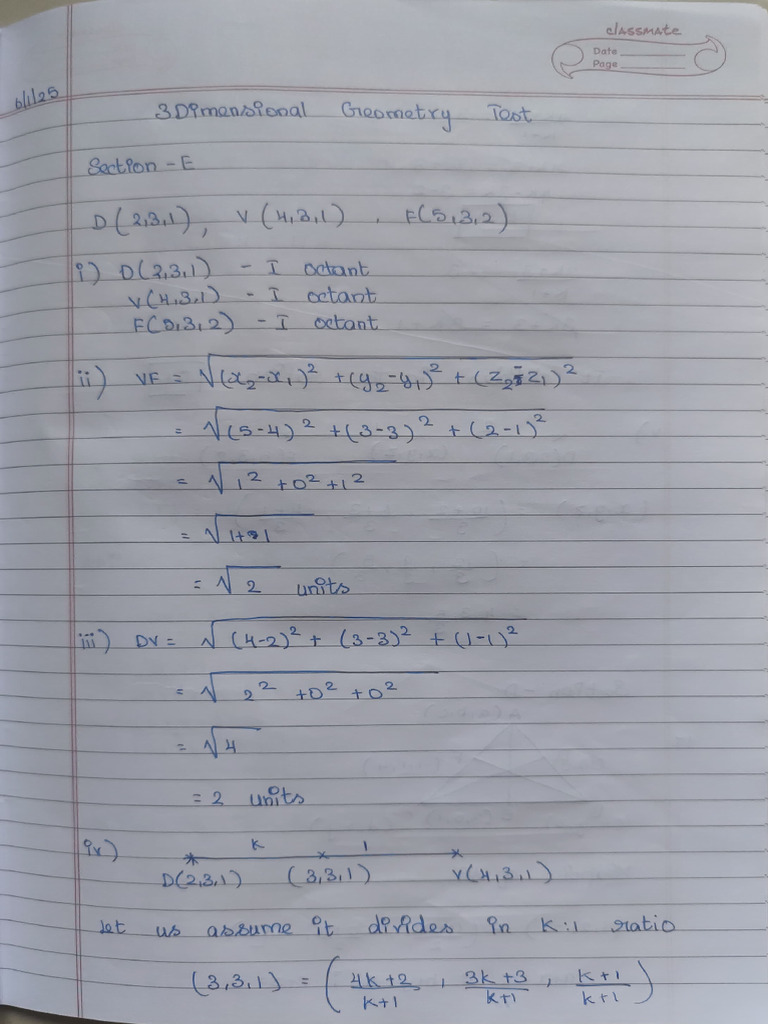 classmate
Date
Page
6/1/25
3Dimensional Geometry Test
Section - E
D(2,3,1), V(4,3,1), F(5,3,2)
i) D(2,3,1) - I octant
V(4,3,1) - I octant
F(5,3,2) - I octant
ii) VF = √(x₂-x₁)² + (y₂-y₁)² + (z₂-z₁)²
= √(5-4)² + (3-3)² + (2-1)²
= √1² + 0² + 1²
= √1+1
= √2 units
iii) DV = √(4-2)² + (3-3)² + (1-1)²
= √2² + 0² + 0²
= √4
= 2 units
iv) K 1
D(2,3,1) (3,3,1) V(4,3,1)
Let us assume it divides in K:1 ratio
(3,3,1) = (4k+2/k+1, 3k+3/k+1, k+1/k+1)